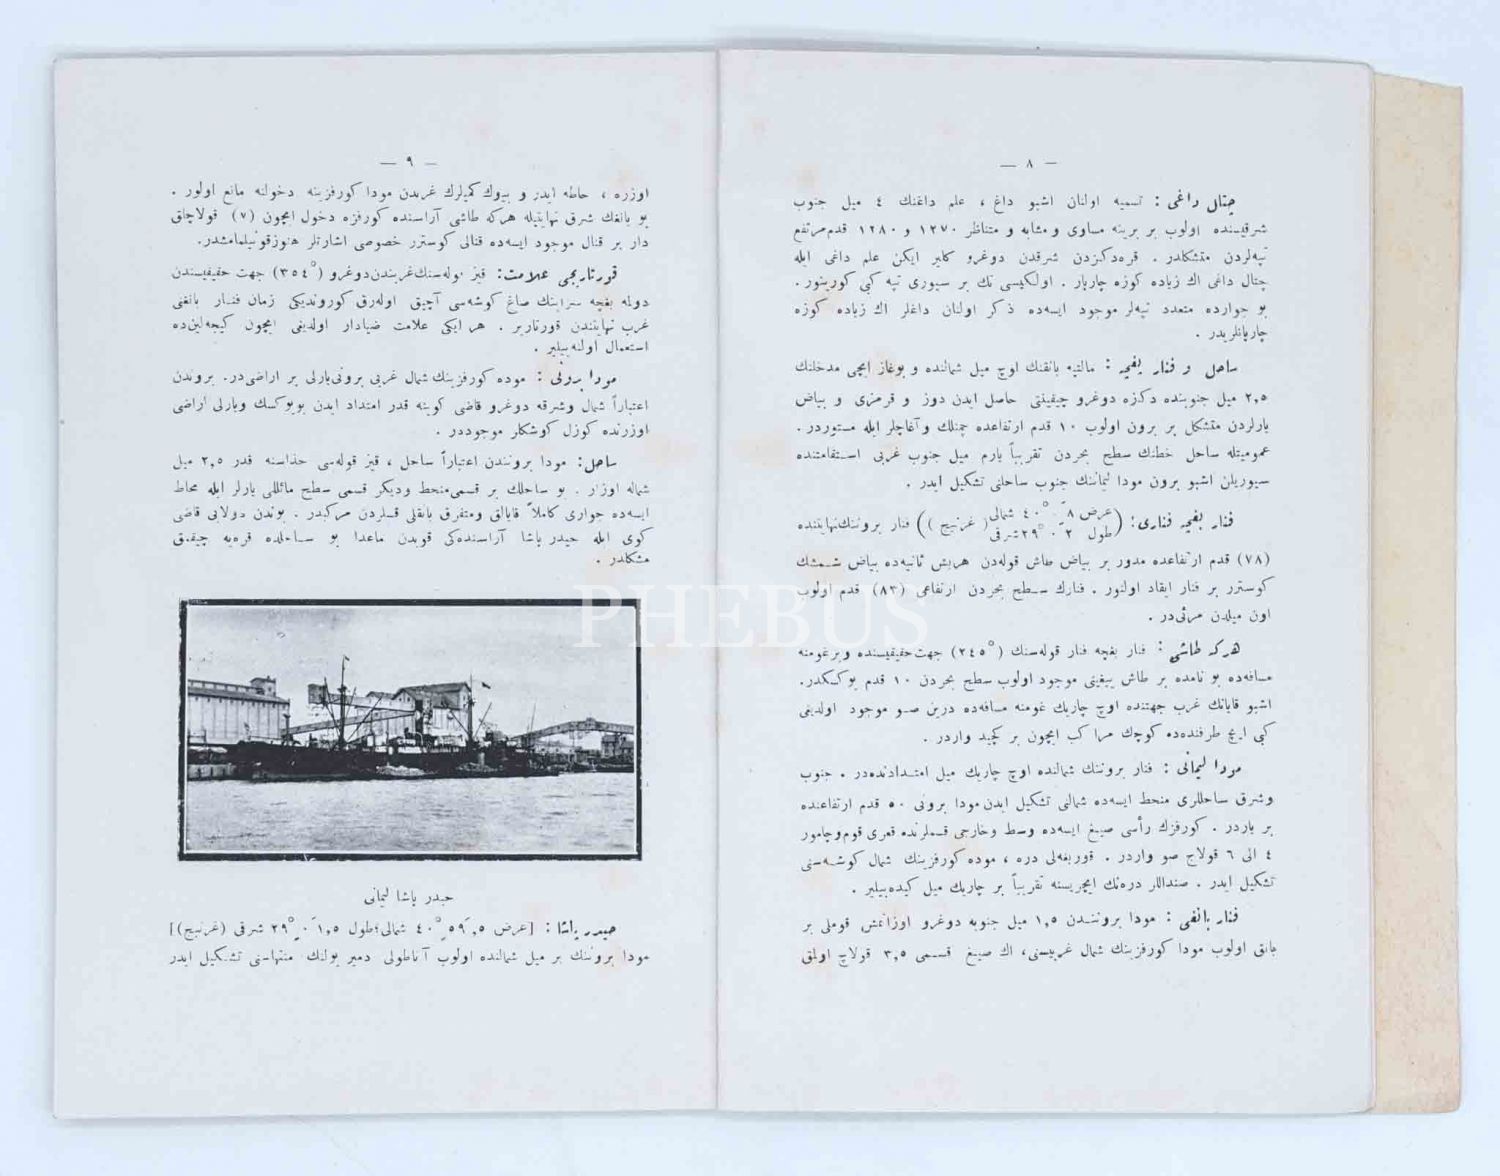 — ٨ —
چتال داغی : تسمیه اولنان اشبو داغ ، علم داغنك ٤ میل جنوب
شرقیسنده اولوب بر برینه مساوی و مشابه و متناظر ١٢٧٠ و ١٢٨٠ قدم مرتفع
تپه‌لردن متشكلدر . قره‌دكزدن شرقدن دوغرو كلیر ایكن علم داغی ایله
چتال داغی اك زیاده كوزه چارپار . اولكیسی تك بر سیوری تپه كبی كورینور .
بو جوارده متعدد تپه‌لر موجود ایسه‌ده ذكر اولنان داغلر اك زیاده كوزه
چارپانلریدر .
ساحل و فنار بغچه : مالتپه بانقنك اوچ میل شمالنده و بوغاز ایچی مدخلنك
٢,٥ میل جنوبنده دكزه دوغرو چیقینتی حاصل ایدن دوز و قرمزی و بیاض
یارلردن متشكل بر برون اولوب ١٠ قدم ارتفاعده چمنلك و آغاچلر ایله مستوردر .
عمومیتله ساحل خطنك سطح بحردن تقریباً یارم میل جنوب غربی استقامتنده
سیوریلن اشبو برون مودا لیماننك جنوب ساحلنی تشكیل ایدر .
فنار بغچه فناری : (عرض ٨َ ـ ٤٠° شمالی طول ٢َ ـ ٢٩° شرقی (غرنیچ)) فنار بروننك نهایتنده
(٧٨) قدم ارتفاعده مدور بر بیاض طاش قوله‌دن هربش ثانیه‌ده بیاض شمشك
كوسترر بر فنار ایقاد اولنور . فنارك سطح بحردن ارتفاعی (٨٣) قدم اولوب
اون میلدن مرئی‌در .
هركه طاشی : فنار بغچه فنار قوله‌سنك (٢٤٥°) جهت حقیقیسنده و برغومنه
مسافه‌ده بو نامده بر طاش ییغینی موجود اولوب سطح بحردن ١٠ قدم یوكسكدر.
اشبو قایانك غرب جهتنده اوچ چاریك غومنه مسافه‌ده درین صو موجود اولدیغی
كبی ایچ طرفنده‌ده كوچك مراكب ایچون بر كچید واردر .
مودا لیمانی : فنار بروننك شمالنده اوچ چاریك میل امتدادنده‌در . جنوب
و شرق ساحللری منحط ایسه‌ده شمالی تشكیل ایدن مودا برونی ٥٠ قدم ارتفاعنده
بر یاردر . كورفزك رأسی صیغ ایسه‌ده وسط و خارجی قسملرنده قعری قوم و چامور
٤ الی ٦ قولاچ صو واردر . قوربغه‌لی دره ، موده كورفزینك شمال كوشه‌سنی
تشكیل ایدر . صنداللر دره‌نك ایچریسنه تقریباً بر چاریك میل كیده‌بیلیر .
فنار بانقی : مودا بروننـدن ١,٥ میل جنوبه دوغرو اوزانمش قوملی بر
بانق اولوب مودا كورفزینك شمال غربیسنی، اك صیغ قسمی ٣,٥ قولاچ اولمق
— ٩ —
اوزره ، احاطه ایدر و بیوك كمیلرك غربدن مودا كورفزینه دخولنه مانع اولور .
بو بانغك شرق نهایتیله هركه طاشی آراسنده كورفزه دخول ایچون (٧) قولاچلق
دار بر قنال موجود ایسه‌ده قنالی كوسترر خصوصی اشارتلر هنوز قونیلمامشدر.
قورتاریجی علامت: قیز قوله‌سنك غربندن دوغرو (٣٥٤°) جهت حقیقیسندن
دولمه بغچه سراینك صاغ كوشه‌سی آچیق اوله‌رق كوروندیكی زمان فنار بانغی
غرب نهایتندن قورتاریر . هر ایكی علامت ضیادار اولدیغی ایچون كیجه‌لین‌ده
استعمال اولنه‌بیلیر .
مودا برونی : موده كورفزینك شمال غربی برونی یارلی بر اراضی‌در. بروندن
اعتباراً شمال و شرقه دوغرو قاضی كوینه قدر امتداد ایدن بو یوكسك و یارلی اراضی
اوزرنده كوزل كوشكلر موجوددر .
ساحل: مودا بروندن اعتباراً ساحل ، قیز قوله‌سی حذاسنه قدر ٢,٥ میل
شماله اوزار . بو ساحلك بر قسمی منحط و دیكر قسمی سطح مائللی یارلر ایله محاط
ایسه‌ده جواری كاملاً قایالق و متفرق بانقلی قسلردن مركبدر . بوندن دولایی قاضی
كوی ایله حیدر پاشا آراسنده‌كی قویدن ماعدا بو ساحلده قره‌یه چیقیق
مشكلدر .
حیدر پاشا لیمانی
حیدر پاشا : [عرض ٥٩,٥َ ـ ٤٠° شمالی؛ طول ١,٥َ ـ ٢٩° شرقی (غرنیچ)]
مودا بروننك بر میل شمالنده اولوب آناطولی دمیر یولنك منتهاسنی تشكیل ایدر
PHEBUS